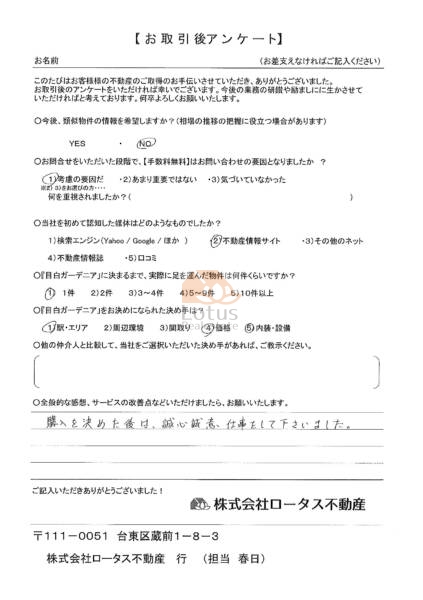 【お取引後アンケート】
お名前 (お差支えなければご記入ください)
このたびはお客様様の不動産のご取得のお手伝いさせていただき、ありがとうございました。
お取引後のアンケートをいただければ幸いでございます。今後の業務の研鑽や励ましにに生かさせて
いただければと考えております。何卒よろしくお願いいたします。
○今後、類似物件の情報を希望しますか?(相場の推移の把握に役立つ場合があります)
YES ・ NO
○お問合せをいただいた段階で、【手数料無料】はお問い合わせの要因となりましたか ?
1)考慮の要因だ ・2)あまり重要ではない ・3)気づいていなかった
※2) 3)をお選びの方・・・・
何を重視されましたか?( )
○当社を初めて認知した媒体はどのようなものでしたか?
1)検索エンジン(Yahoo / Google / ほか ) ・2)不動産情報サイト ・3)その他のネット
4)不動産情報誌 ・5)口コミ
○『目白ガーデニア』に決まるまで、実際に足を運んだ物件は何件くらいですか?
1) 1件 2)2件 3)3~4件 4)5~9件 5)10件以上
○『目白ガーデニア』をお決めになられた決め手は?
1)駅・エリア 2)周辺環境 3)間取り 4)価格 5)内装・設備
Lotus
real estate
○他の仲介人と比較して、当社をご選択いただいた決め手があれば、ご教示ください。
○全般的な感想、サービスの改善点などいただけましたら、お願いいたします。
購入を決めた後は、誠心誠意、仕事をして下さいました。
ご記入いただきありがとうございました!
株式会社ロータス不動産
〒111-0051 台東区蔵前1-8-3
株式会社ロータス不動産 行 (担当 春日)